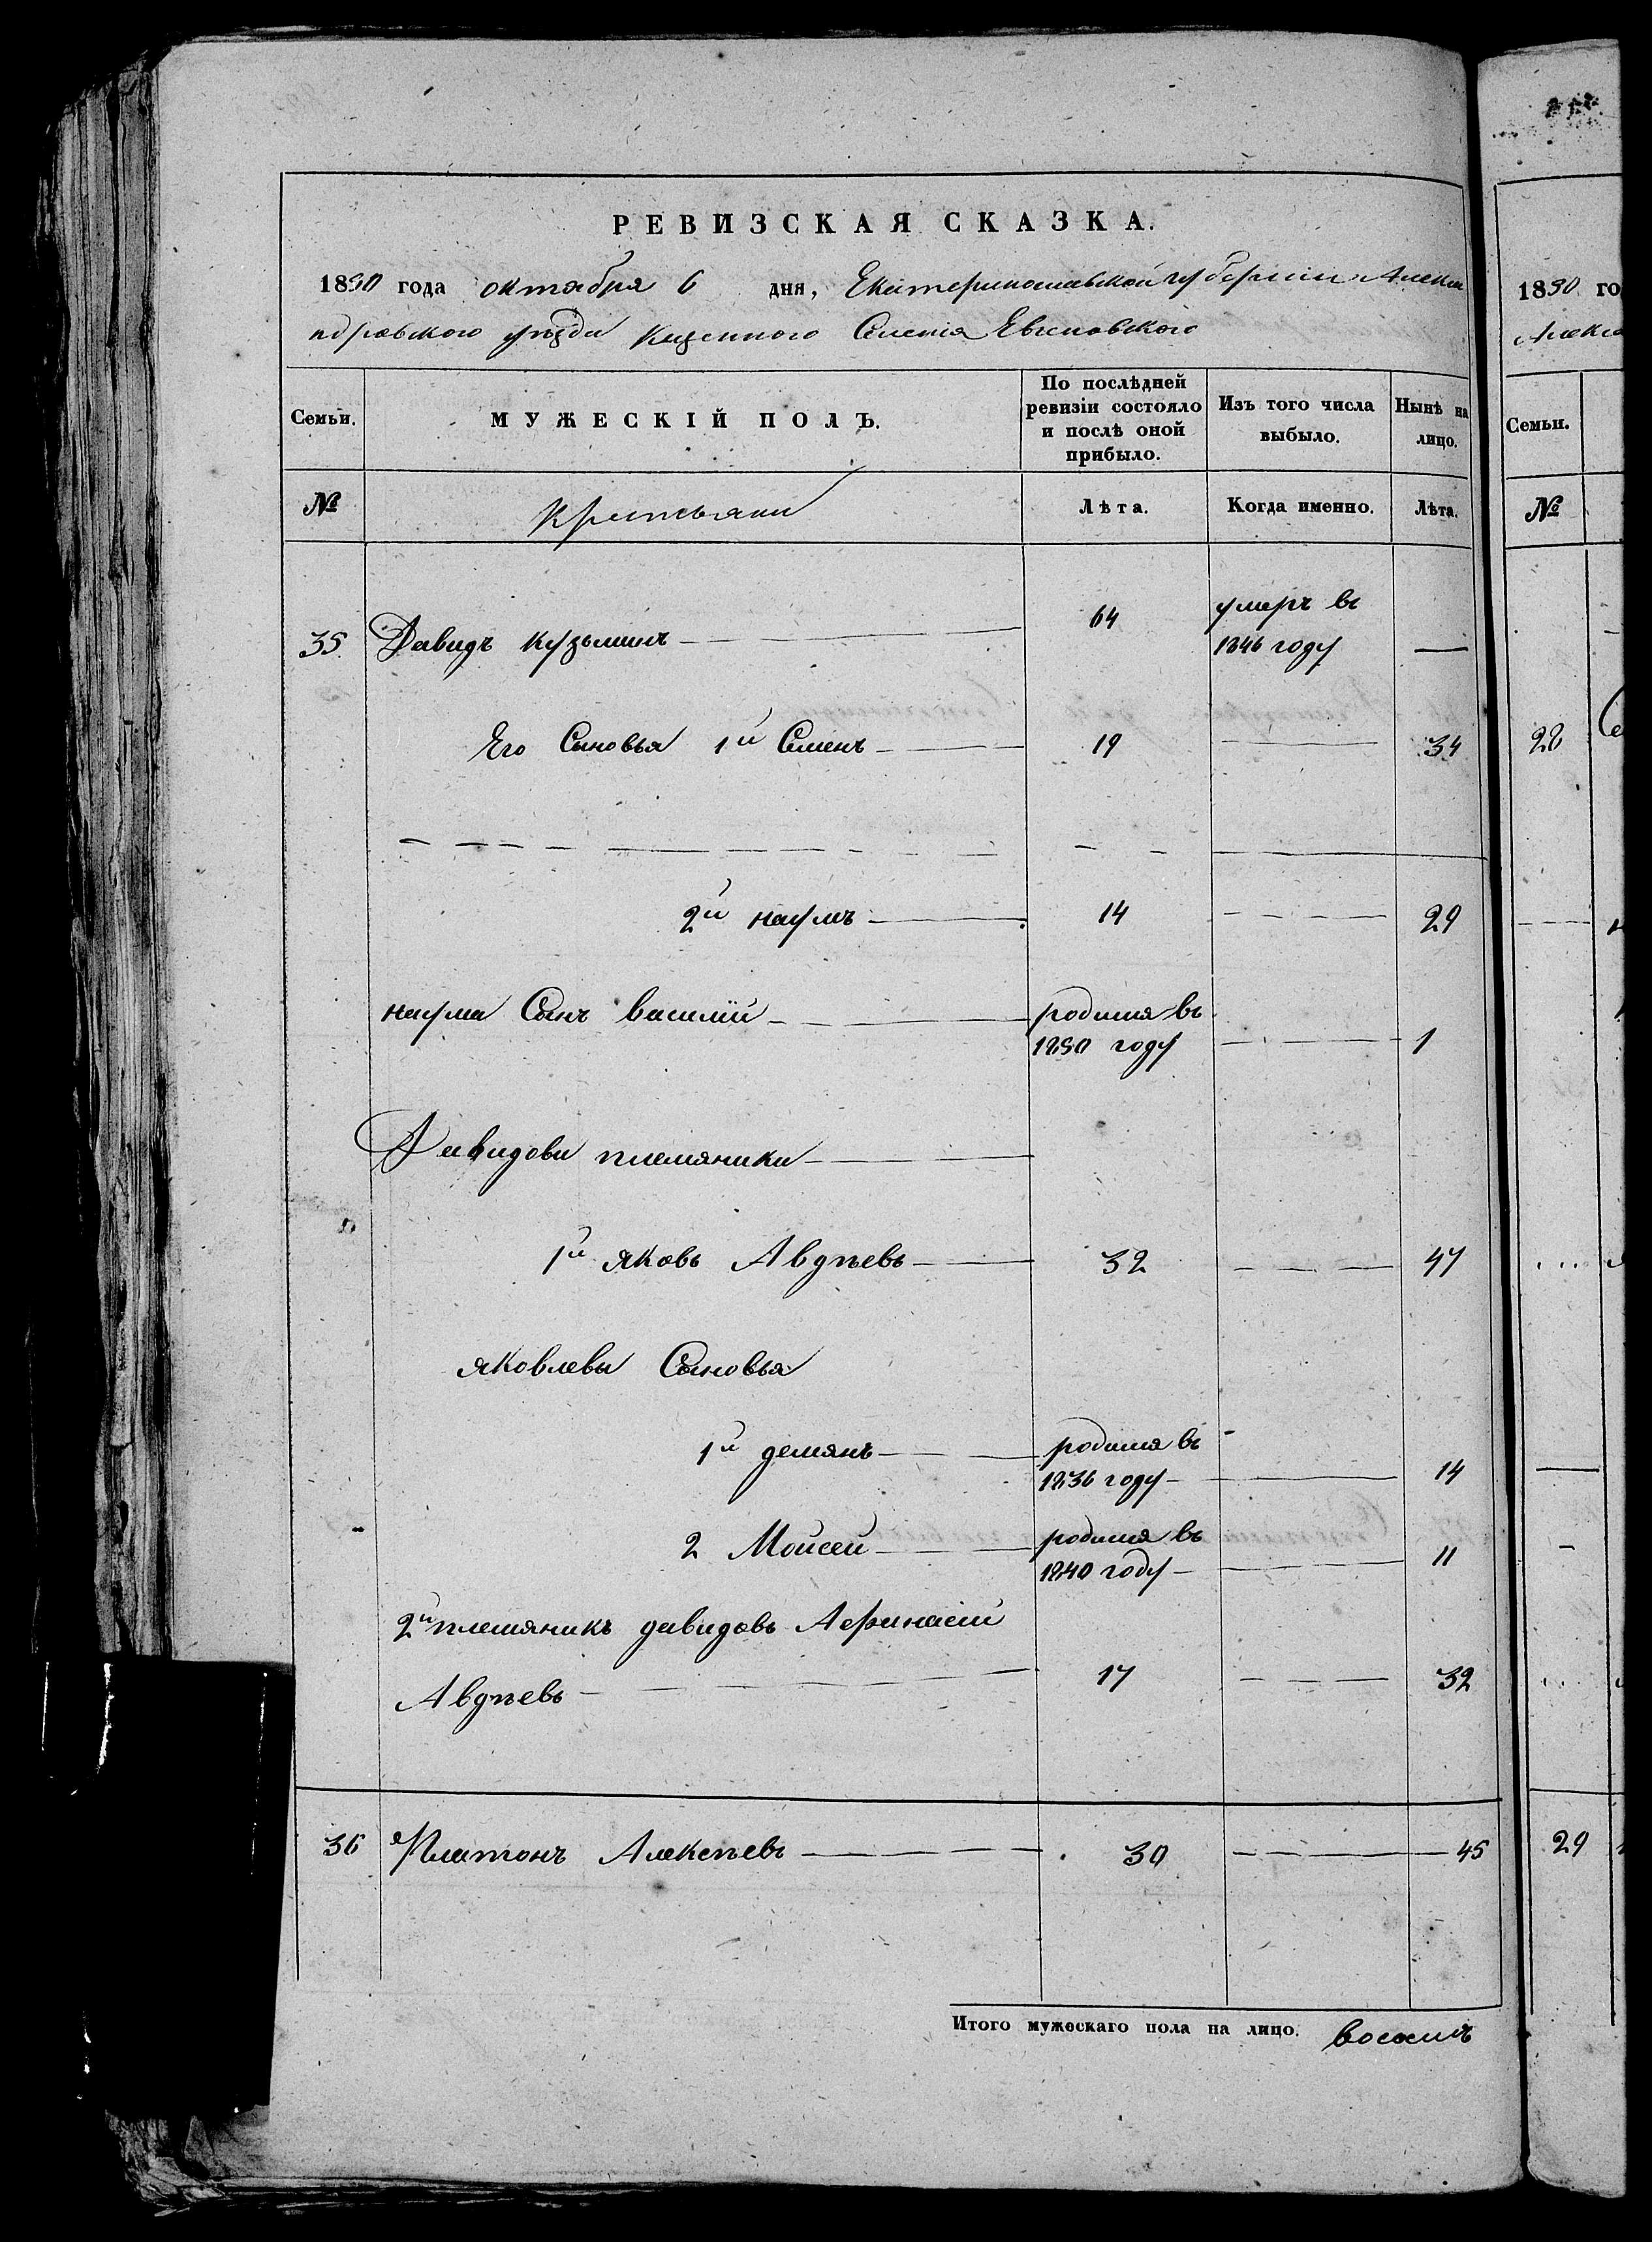 РЕВИЗСКАЯ СКАЗКА.
1850 года октября 6 дня, Екатеринославской губернии Алекса
ндровского уезда казенного Селения Евсковского
Семьи. МУЖЕСКІЙ ПОЛЪ. По послѣдней ревизіи состояло и послѣ оной прибыло. Изъ того числа выбыло. Нынѣ на лицо.
№ Крестьяни Лѣта. Когда именно. Лѣта.
35 Давидъ Кузьминъ 64 умеръ въ 1846 году
Его Сыновья 1й Семенъ 19 34
2й наумъ 14 29
наума Сынъ василій родился въ 1850 году 1
Давидови племяники
1й яковъ Авдѣевъ 32 47
яковлевы Сыновья
1й демянъ родился въ 1836 году 14
2 Моисей родился въ 1840 году 11
2й племяникъ давидовъ Афанасій
Авдѣевъ 17 32
36 Платонъ Алексѣевъ 30 45
Итого мужескаго пола на лицо. восемъ
1850 го
Алекса
Семьи.
№
28
29